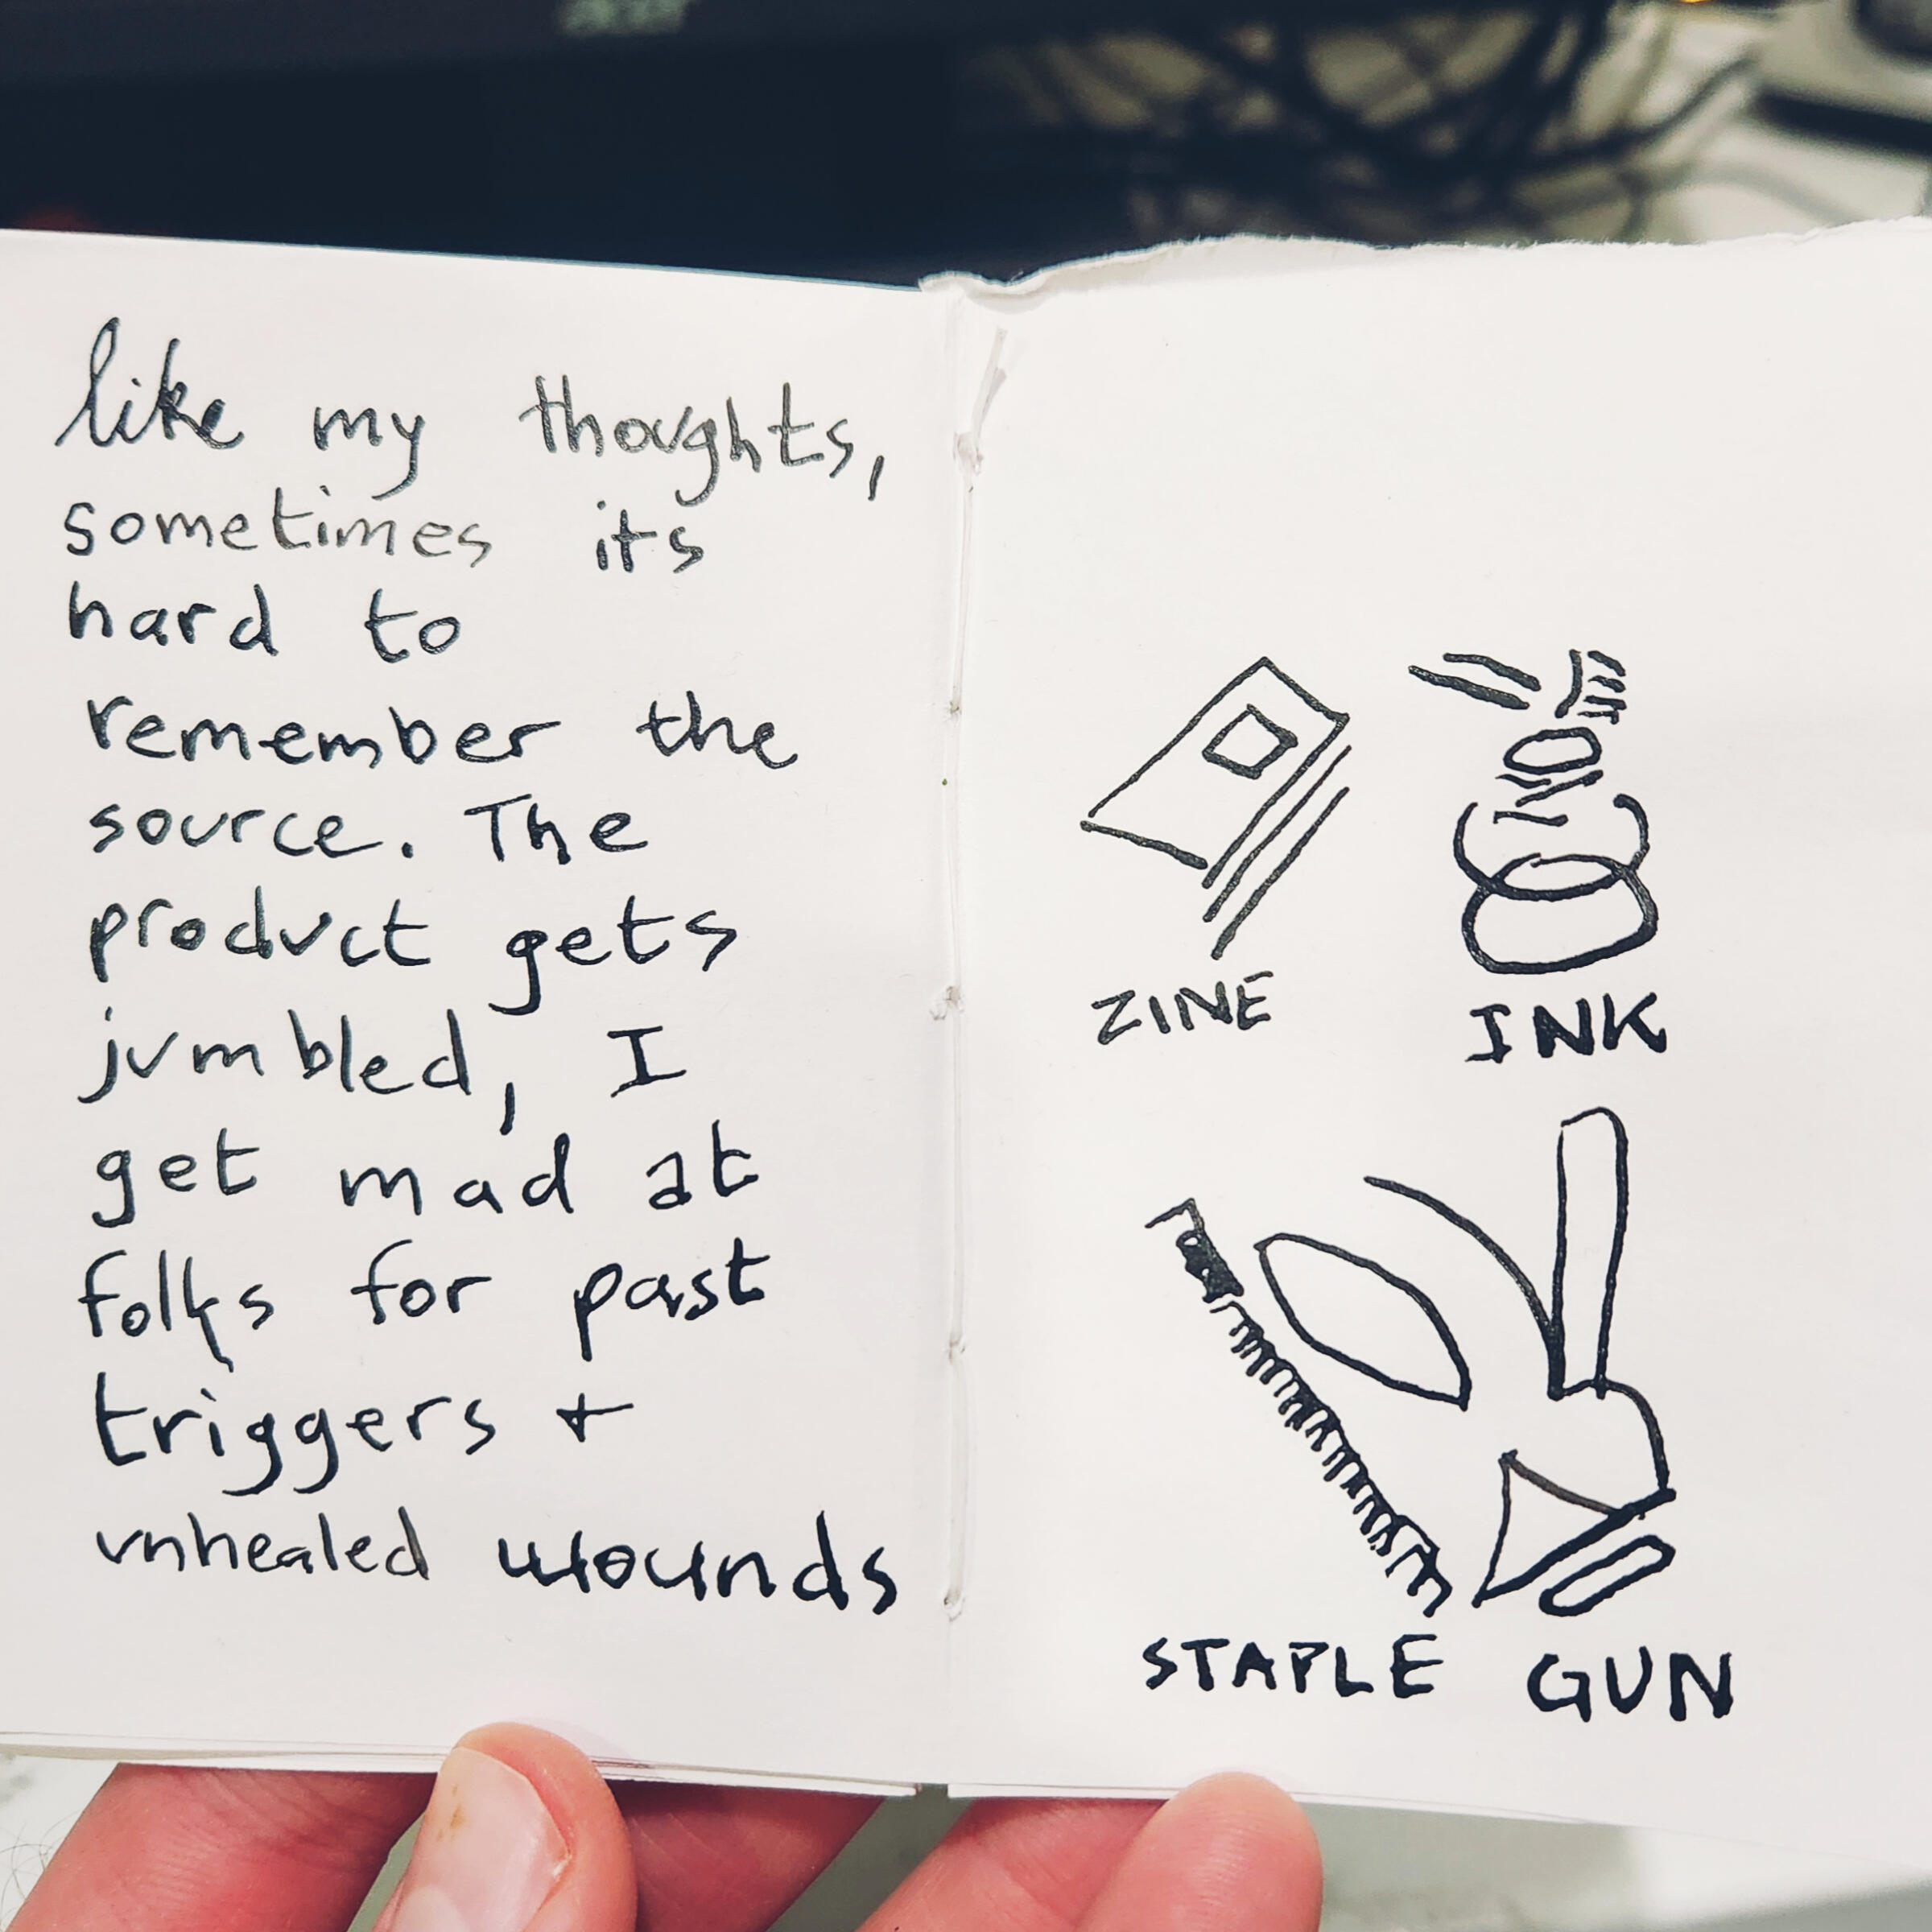 like my thoughts,
sometimes its
hard to
remember the
source. The
product gets
jumbled, I
get mad at
folks for past
triggers +
unhealed wounds
ZINE
INK
STAPLE GUN